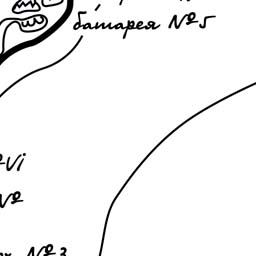 батарея №5
№VI
№
№3